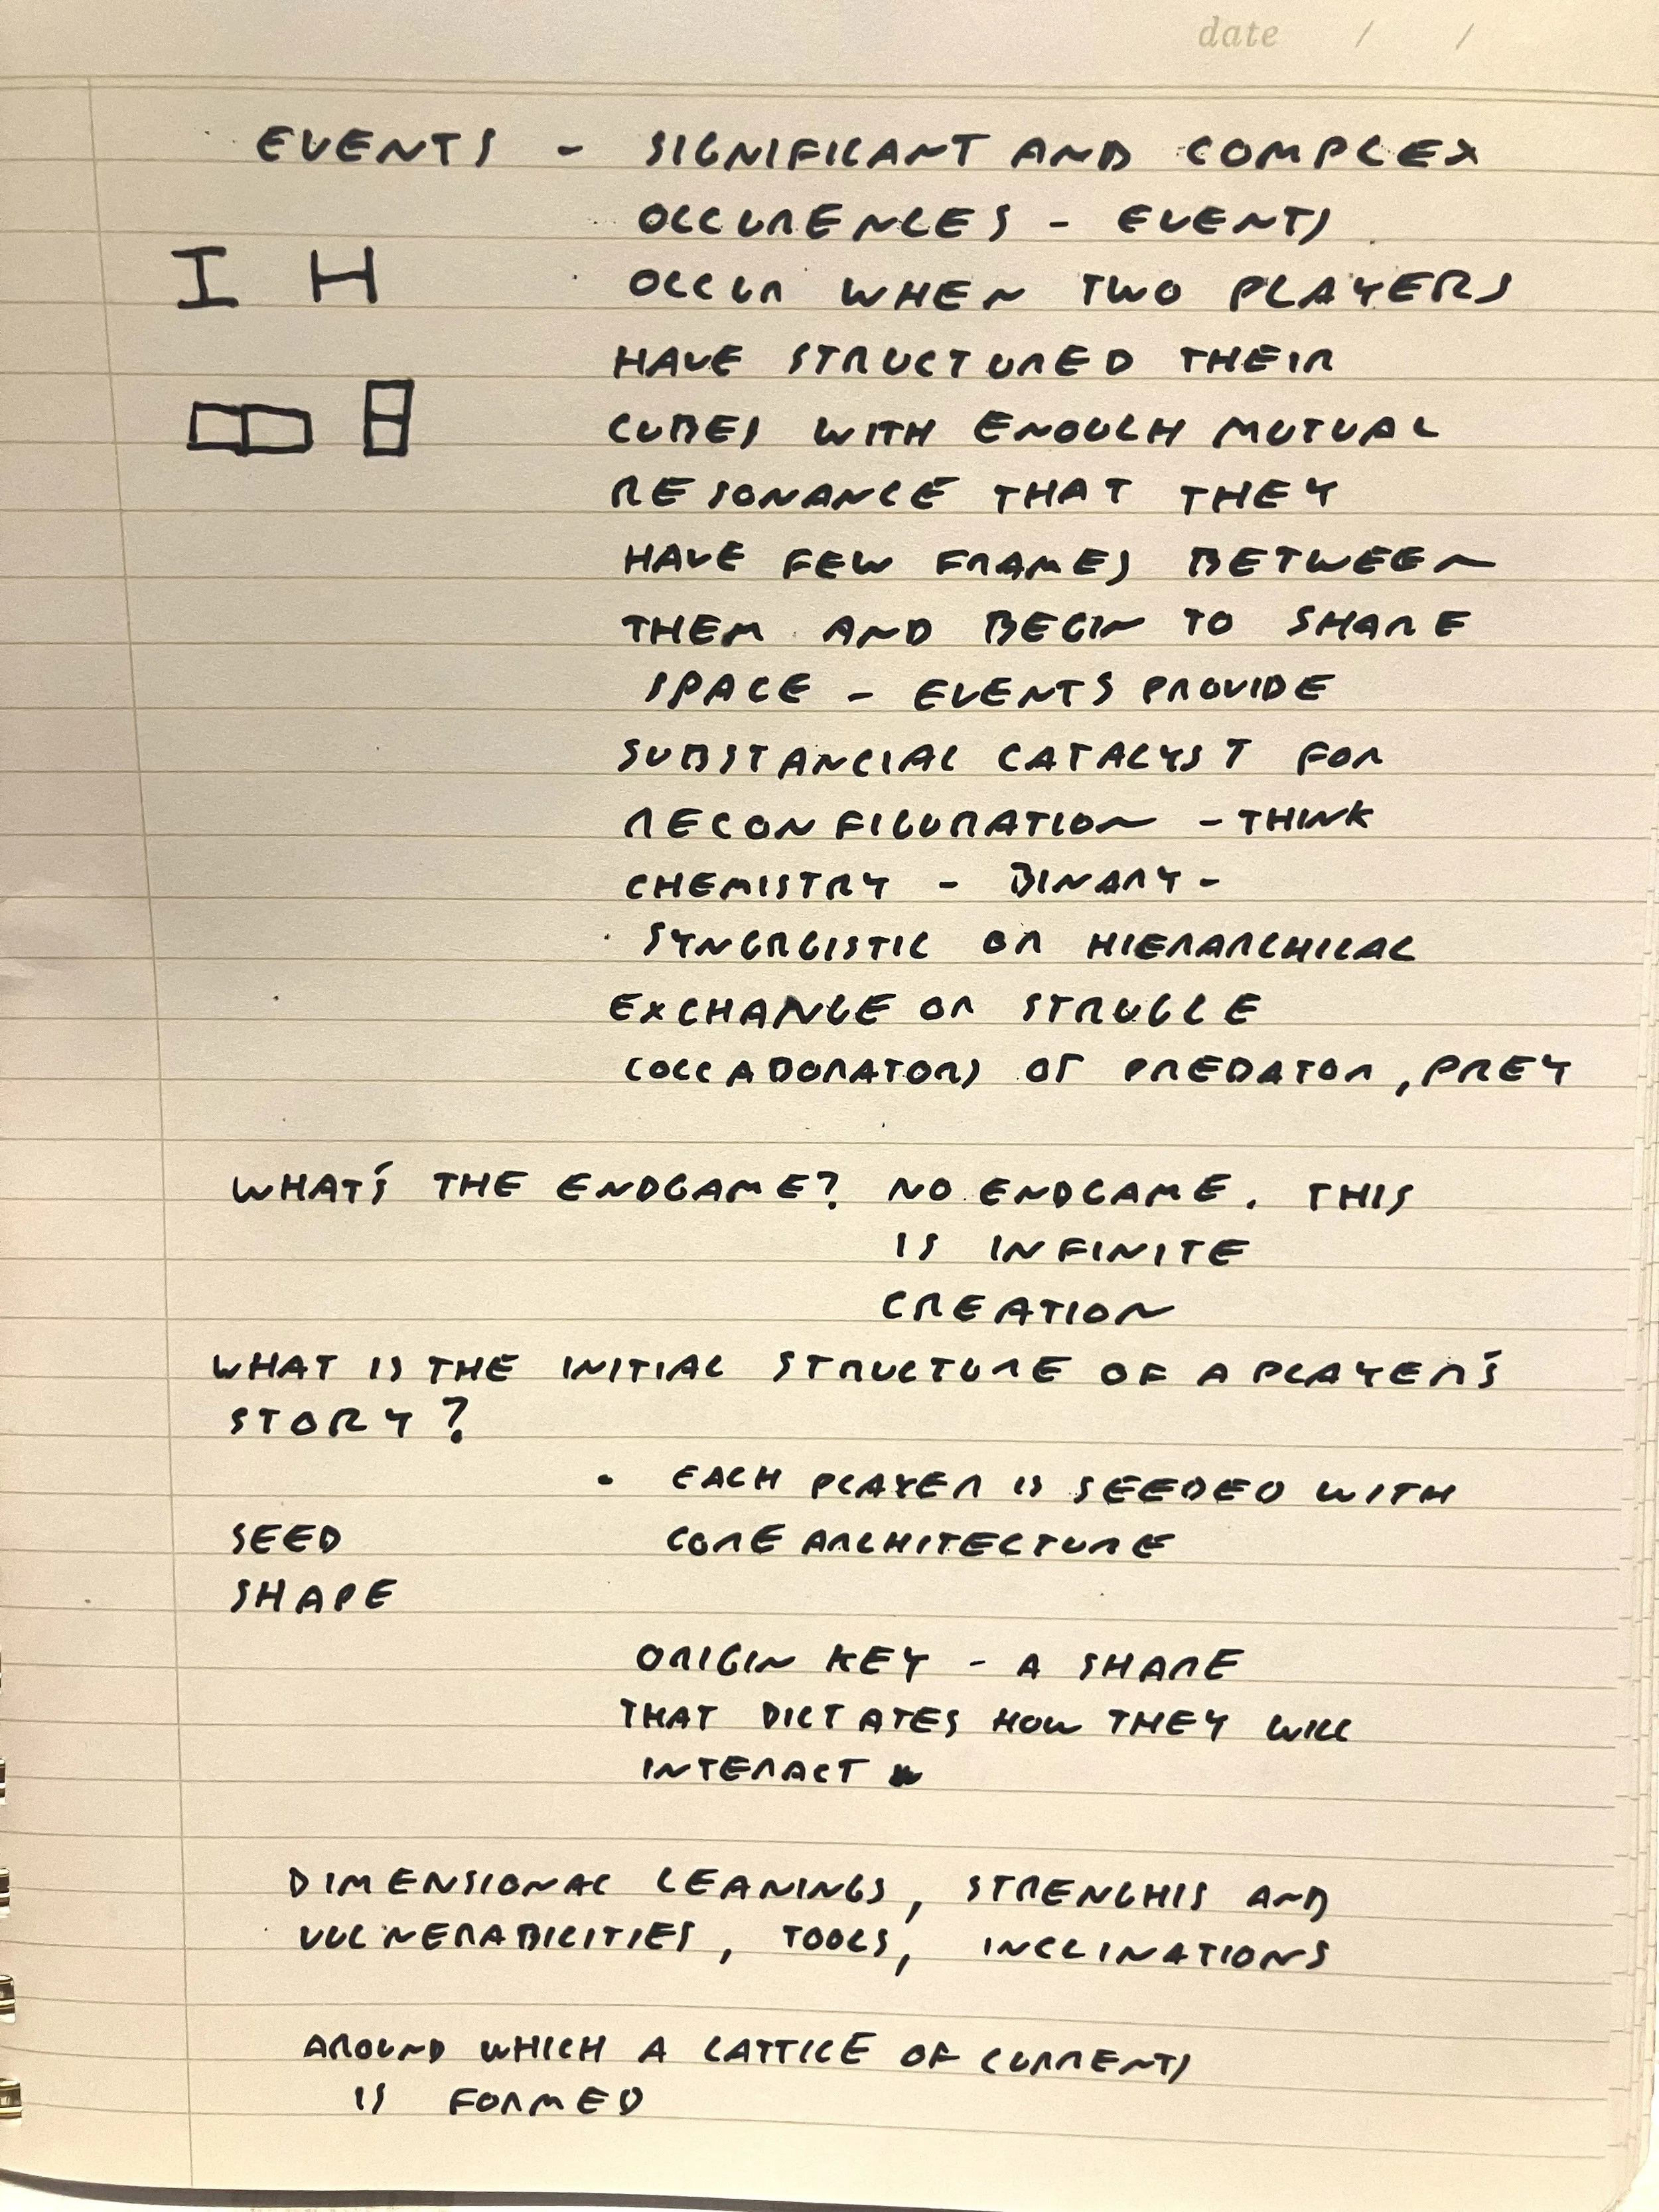 date / /
EVENTS - SIGNIFICANT AND COMPLEX
OCCURENCES - EVENTS
I H
OCCUR WHEN TWO PLAYERS
HAVE STRUCTURED THEIR
CUBES WITH ENOUGH MUTUAL
RESONANCE THAT THEY
HAVE FEW FRAMES BETWEEN
THEM AND BEGIN TO SHARE
SPACE - EVENTS PROVIDE
SUBSTANCIAL CATALYST FOR
RECONFIGURATION - THINK
CHEMISTRY - BINARY -
SYNGRGISTIC OR HIERARCHICAL
EXCHANGE OR STRUGGLE
COLLABORATORS OF PREDATOR, PREY
WHAT'S THE ENDGAME? NO ENDGAME. THIS
IS INFINITE
CREATION
WHAT IS THE INITIAL STRUCTURE OF A PLAYER'S
STORY?
• EACH PLAYER IS SEEDED WITH
SEED CORE ARCHITECTURE
SHAPE
ORIGIN KEY - A SHAPE
THAT DICTATES HOW THEY WILL
INTERACT
DIMENSIONAL LEANINGS, STRENGHTS AND
VULNERABILITIES, TOOLS, INCLINATIONS
AROUND WHICH A LATTICE OF CURRENTS
IS FORMED